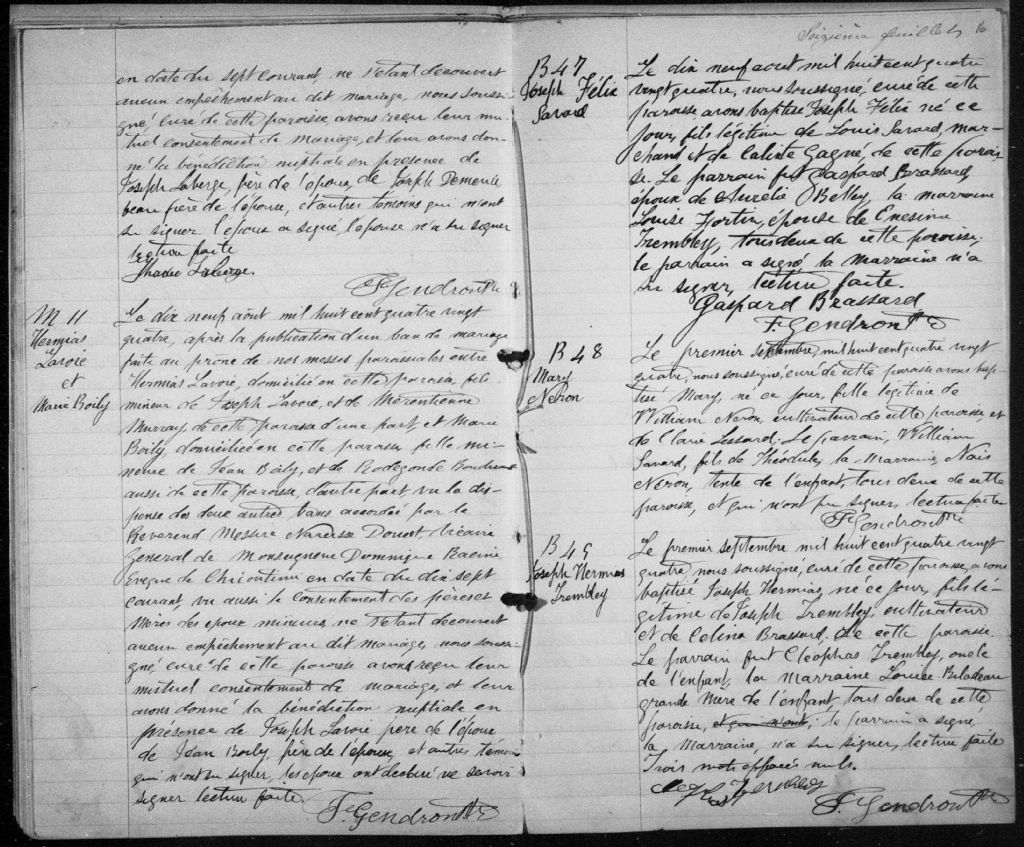 en date du sept courant, ne s'étant découvert
aucun empêchement au dit mariage, nous soussi-
gné, curé de cette paroisse avons reçu leur mu-
tuel consentement de mariage, et leur avons don-
né la bénédiction nuptiale en présence de
Joseph Laberge, frère de l'époux, de Joseph Demeule
beau frère de l'épouse, et autres témoins qui n'ont
su signer l'époux a signé, l'épouse n'a su signer
lection faite
Laberge
F. Gendron Ptre
M 11
Hermias
Lavoie
et
Marie Boily
Le dix neuf août mil huit cent quatre vingt
quatre, après la publication d'un ban de mariage
faite au prône de nos messes paroissiales entre
Hermias Lavoie, domicilié en cette paroisse, fils
mineur de Joseph Lavoie, et de Mérentienne
Murray, de cette paroisse d'une part, et Marie
Boily, domiciliée en cette paroisse, fille mi-
neure de Jean Boily, et de Rodegonde Boudreault
aussi de cette paroisse, d'autre part, vu la dis-
pense des deux autres bans accordés par le
Révérend Messire Narcisse Doucet Vicaire
Général de Monseigneur Dominique Racine
Evêque de Chicoutimi en date du dix sept
courant, vu aussi le consentement des pères et
Mères des époux mineurs, ne s'étant découvert
aucun empêchement au dit mariage, nous sous-
gné, curé de cette paroisse avons reçu leur
mutuel consentement de mariage, et leur
avons donné la bénédiction nuptiale en
présence de Joseph Lavoie père de l'époux
de Jean Boily, père de l'épouse, et autres témoins
qui n'ont su signer, les époux ont déclaré ne savoir
signer lecture faite.
F. Gendron Ptre
Seizième feuillet 16
B 47
Joseph Félix
Savard
Le dix neuf aout mil huit cent quatre
vingt quatre, nous soussigné, curé de cette
paroisse avons baptisé Joseph Félix né ce
jour, fils légitime de Louis Savard, mar-
chand et de Calixte Gagné, de cette parois
se. Le parrain fut Gaspard Brassard
époux de Aurélie Belley, la marraine
Louise Fortin, épouse de Enesime
Trembley, tous deux de cette paroisse,
le parrain a signé la Marraine n'a
su signer, lecture faite.
Gaspard Brassard
F. Gendron Ptre
B 48
Mary
Neron
Le premier septembre, mil huit cent quatre vingt
quatre, nous soussigné, curé de cette paroisse avons bap
tisé Mary, née ce jour, fille légitime de
William Neron, cultivateur de cette paroisse, et
de Clarie Lessard. Le parrain, William
Savard, fils de Théodule, la Marraine, Naïs
Neron, tente de l'enfant, tous deux de cette
paroisse, et qui n'ont pu signer, lecture faite
F. Gendron Ptre
B 49
Joseph Hermias
Trembley
Le premier septembre mil huit cent quatre vingt
quatre nous soussigné, curé de cette paroisse, avons
baptisé Joseph Hermias, né ce jour, fils lé-
gitime de Joseph Trembley, cultivateur
et de Celina Brassard, de cette paroisse.
Le parrain fut Cléophas Trembley, oncle
de l'enfant, la Marraine Louise Biladeau
grande Mère de l'enfant, tous deux de cette
paroisse, et qui n'ont, le parrain a signé,
la Marraine, n'a su signer, lecture faite
Trois mots effacés nuls.
F. Gendron Ptre